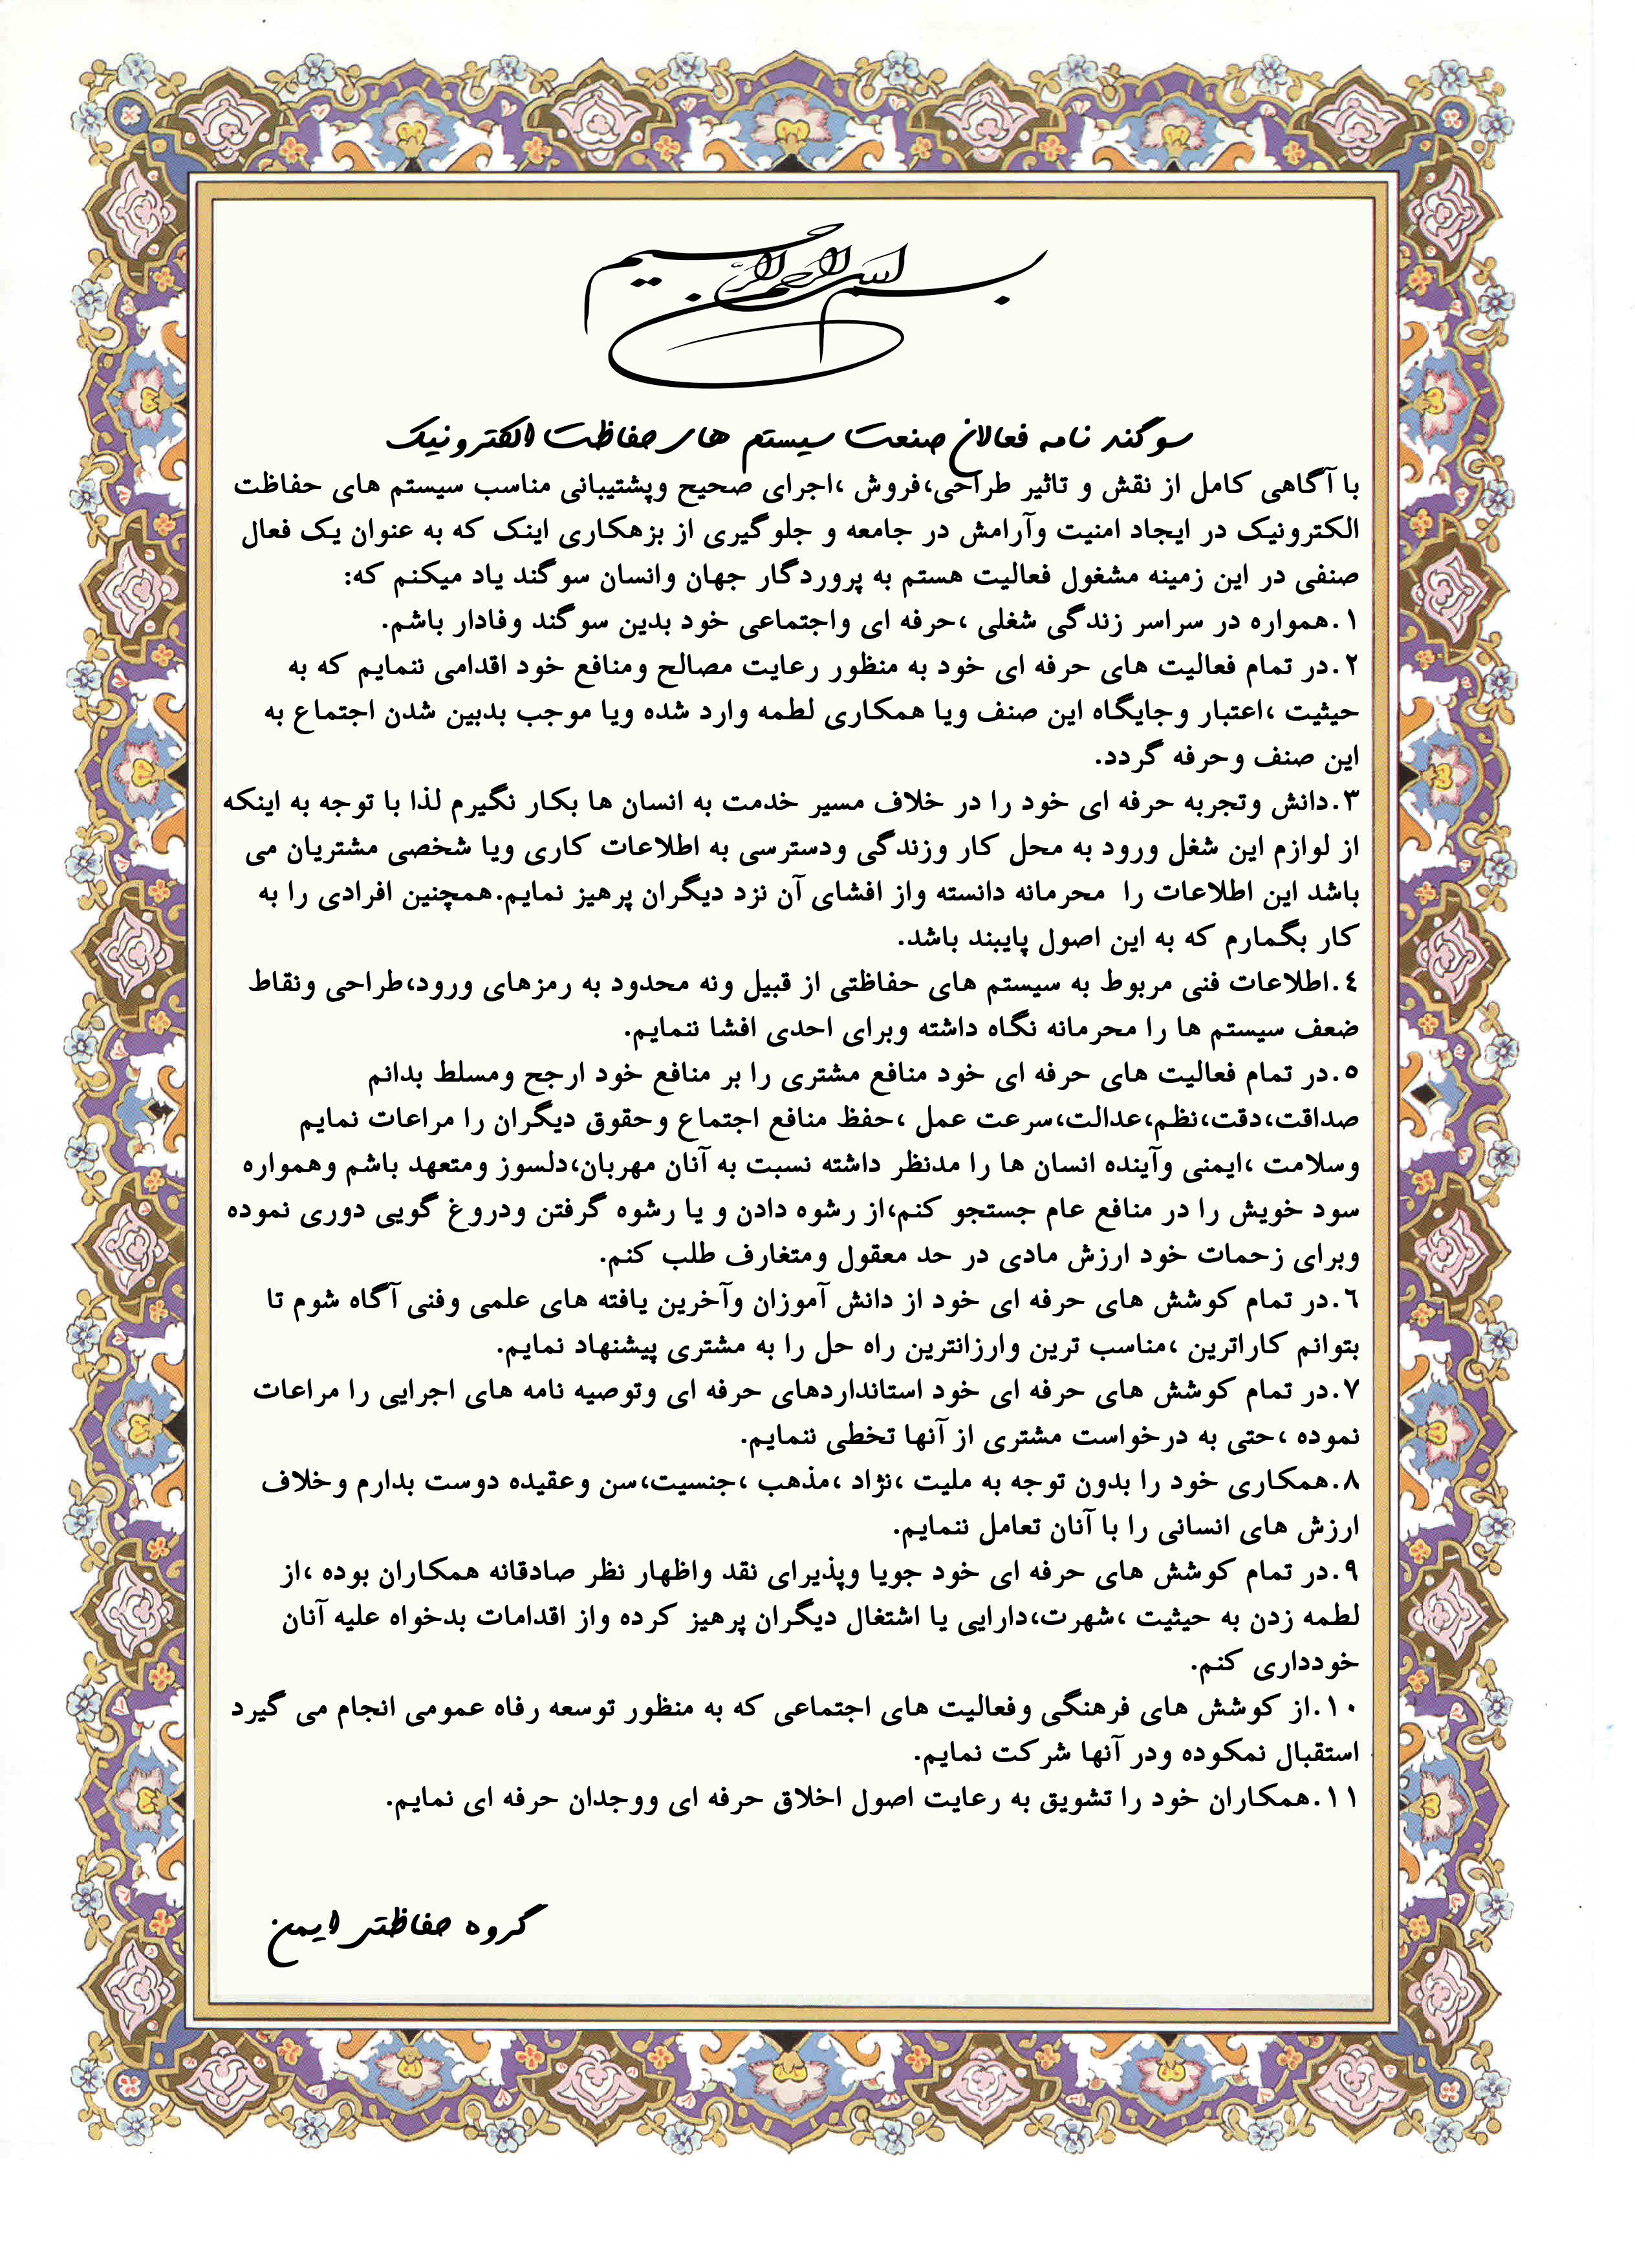 بسم الله الرحمن الرحیم
سوگند نامه فعالان صنعت سیستم های حفاظت الکترونیک
با آگاهی کامل از نقش و تاثیر طراحی،فروش ،اجرای صحیح وپشتیبانی مناسب سیستم های حفاظت
الکترونیک در ایجاد امنیت وآرامش در جامعه و جلوگیری از بزهکاری اینک که به عنوان یک فعال
صنفی در این زمینه مشغول فعالیت هستم به پروردگار جهان وانسان سوگند یاد میکنم که:
۱.همواره در سراسر زندگی شغلی ،حرفه ای واجتماعی خود بدین سوگند وفادار باشم.
۲.در تمام فعالیت های حرفه ای خود به منظور رعایت مصالح ومنافع خود اقدامی ننمایم که به
حیثیت ،اعتبار وجایگاه این صنف ویا همکاری لطمه وارد شده ویا موجب بدبین شدن اجتماع به
این صنف وحرفه گردد.
۳.دانش وتجربه حرفه ای خود را در خلاف مسیر خدمت به انسان ها بکار نگیرم لذا با توجه به اینکه
از لوازم این شغل ورود به محل کار وزندگی ودسترسی به اطلاعات کاری ویا شخصی مشتریان می
باشد این اطلاعات را محرمانه دانسته واز افشای آن نزد دیگران پرهیز نمایم.همچنین افرادی را به
کار بگمارم که به این اصول پایبند باشد.
٤.اطلاعات فنی مربوط به سیستم های حفاظتی از قبیل ونه محدود به رمزهای ورود،طراحی ونقاط
ضعف سیستم ها را محرمانه نگاه داشته وبرای احدی افشا ننمایم.
٥.در تمام فعالیت های حرفه ای خود منافع مشتری را بر منافع خود ارجح ومسلط بدانم
صداقت،دقت،نظم،عدالت،سرعت عمل ،حفظ منافع اجتماع وحقوق دیگران را مراعات نمایم
وسلامت ،ایمنی وآینده انسان ها را مدنظر داشته نسبت به آنان مهربان،دلسوز ومتعهد باشم وهمواره
سود خویش را در منافع عام جستجو کنم،از رشوه دادن و یا رشوه گرفتن ودروغ گویی دوری نموده
وبرای زحمات خود ارزش مادی در حد معقول ومتغارف طلب کنم.
٦.در تمام کوشش های حرفه ای خود از دانش آموزان وآخرین یافته های علمی وفنی آگاه شوم تا
بتوانم کاراترین ،مناسب ترین وارزانترین راه حل را به مشتری پیشنهاد نمایم.
۷.در تمام کوشش های حرفه ای خود استانداردهای حرفه ای وتوصیه نامه های اجرایی را مراعات
نموده ،حتی به درخواست مشتری از آنها تخطی ننمایم.
۸.همکاری خود را بدون توجه به ملیت ،نژاد ،مذهب ،جنسیت،سن وعقیده دوست بدارم وخلاف
ارزش های انسانی را با آنان تعامل ننمایم.
۹.در تمام کوشش های حرفه ای خود جویا وپذیرای نقد واظهار نظر صادقانه همکاران بوده ،از
لطمه زدن به حیثیت ،شهرت،دارایی یا اشتغال دیگران پرهیز کرده واز اقدامات بدخواه علیه آنان
خودداری کنم.
۱۰.از کوشش های فرهنگی وفعالیت های اجتماعی که به منظور توسعه رفاه عمومی انجام می گیرد
استقبال نمکوده ودر آنها شرکت نمایم.
۱۱.همکاران خود را تشویق به رعایت اصول اخلاق حرفه ای ووجدان حرفه ای نمایم.
گروه حفاظتی ایمن